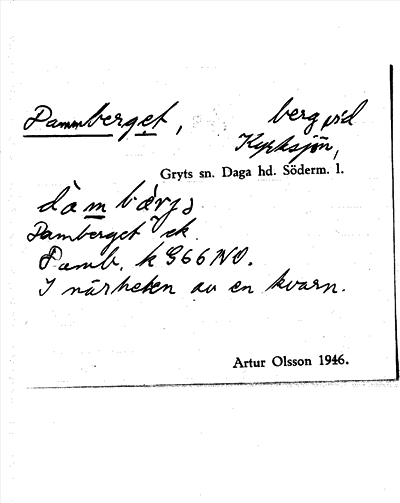 Dammberget, berg vid
Kyrksjön,
Gryts sn. Daga hd. Söderm. l.
dàmbærjə
Damberget ek.
Damb. k G66NO.
I närheten av en kvarn.
Artur Olsson 1946.